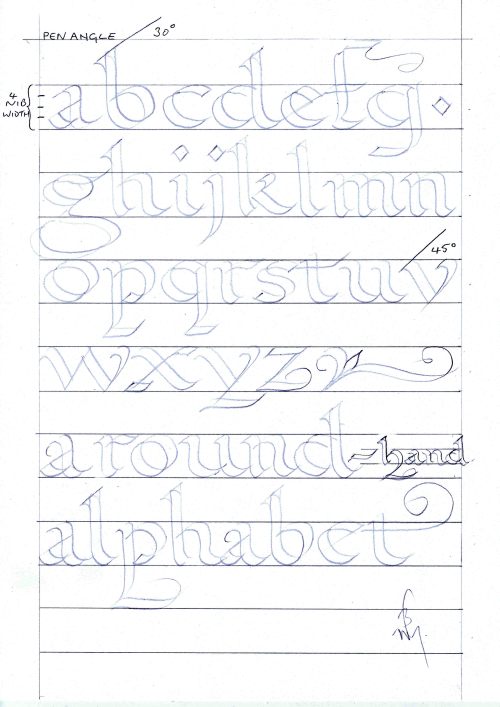 PEN ANGLE 30°
4
NIB
WIDTH
abcdefg
ghijklmn
45°
opqrstuv
wxyz
around-hand
alphabet